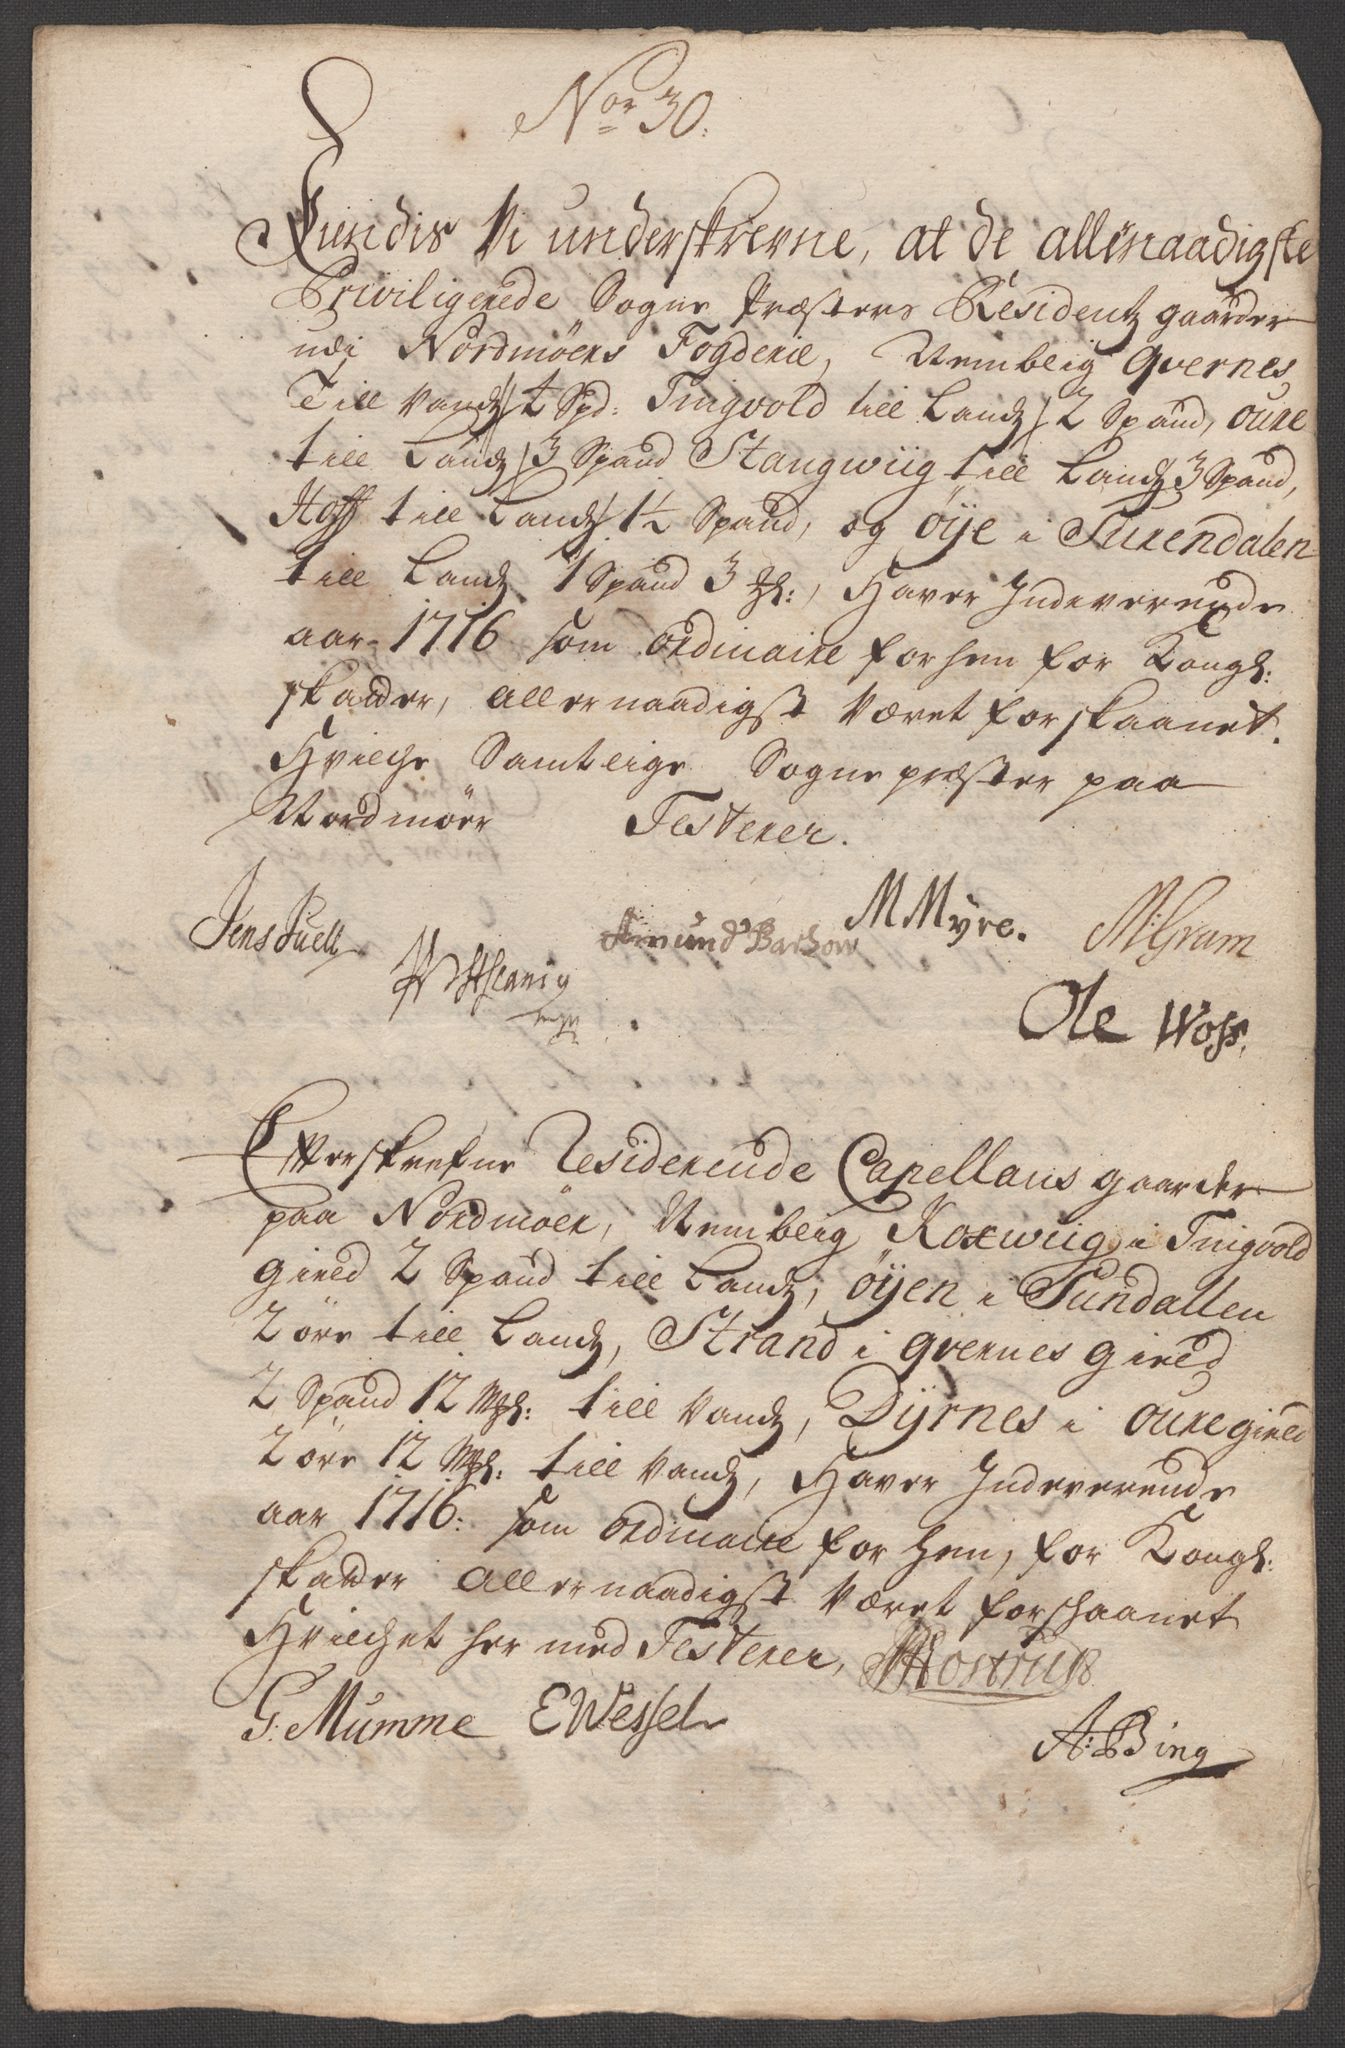 No͞r 30.
Kiendis Vi underskrevne, at de allernaadigste
Priviligerede Sogne Præsters Residentz gaarder
udj Nordmöers Fogderie, Nemblig Qvernes
Till Vandz 2 Spd: Tingvold till Landz 2 Spand, Oure
till Landz 3 Spand Stangwiig till Landz 3 Spand,
Hoff till Landz 1½ Spand, og Öÿe i Surendalen
till Landz 1 Spand 3 Mkl:, Haver Indeverende
aar 1716 som ordinaire forhen for Kongl:
skatter, allernaadigst Været forskaanet.
Hvilche Samtlige Sognepræster paa
Nordmöer Testerer.
Jens Juell
Amund Barhow
M Myre.
M: Gram
Ole Woss.
Efterskrefne Residerende Capellans gaarder
paa Nordmöer, Nemblig Roxwiig i Tingvold
gield 2 Spand till Landz, Öÿen i Sundallen
2 öre till Landz, Strand i Qvernes gield
2 Spand 12 Mkl: till Vandz, Dÿrnes i Oure gield
2 öre 12 Mkl: till Vandz, Haver Indeverende
aar 1716: som ordinaire for hen, for Kongl:
skatter allernaadigst Været forschaanet
Hvilchet her med Testerer,
G: Mumme E Wessel
A: Bing